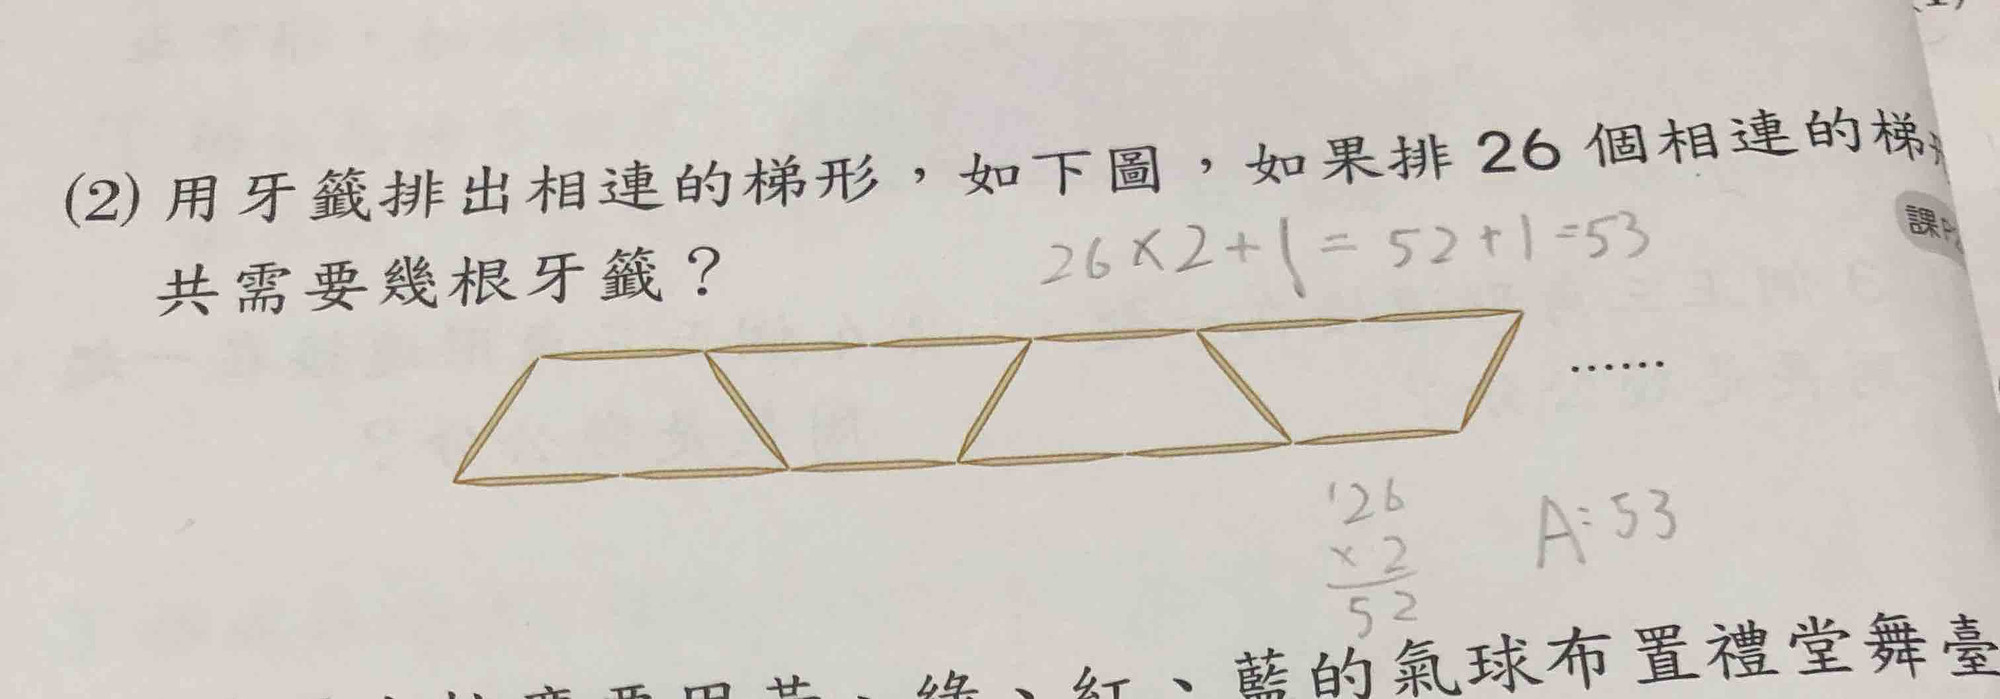 (2) 用牙籤排出相連的梯形，如下圖，如果排 26 個相連的梯
共需要幾根牙籤？
26×2+1=52+1=53
課
……
26
×2
52
A:53
、綠、紅、藍的氣球布置禮堂舞臺